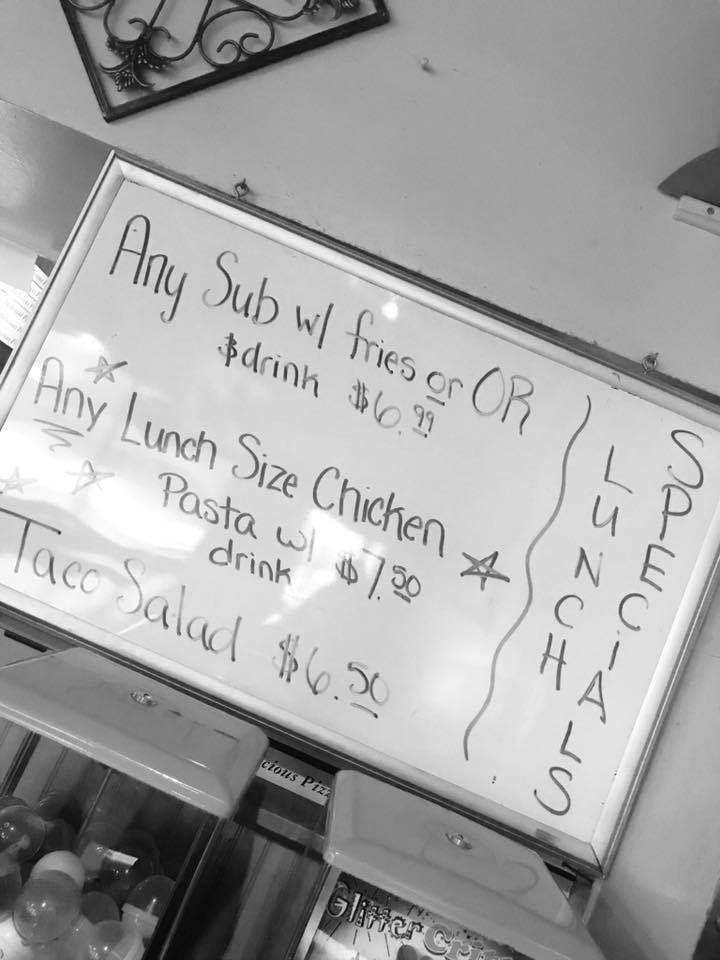 Any Sub w/ fries or OR
$drink $6.99
Any Lunch Size Chicken
Pasta w/ $7.50
drink
Taco Salad $6.50
LUNCH
SPECiALS
cious Pizz
Glitter